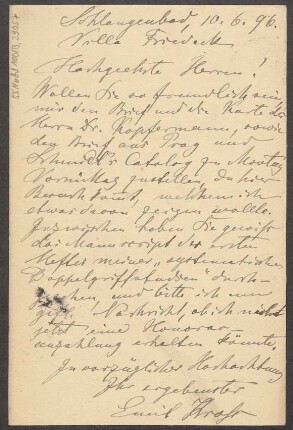 Schlangenbad, 10.6.96.
Villa Friedeck
Hochgeehrte Herren!
Wollen Sie so freundlich sein
mir den Brief und die Karte des
Herrn Dr. Kopfermann, sowie
den Brief aus Prag und
Schmidt's Catalog zu Montag
Vormittag zustellen, da hier
Besuch kommt, welchem ich
etwas davon zeigen wollte.
Inzwischen haben Sie gewiss
das Manuscript des ersten
Heftes meiner "systematischen
Doppelgriffstudien" durch-
gesehen und bitte ich um
Nachricht, ob ich nicht
jetzt eine Honorar
anzahlung erhalten könnte.
In vorzüglicher Hochachtung
Ihr ergebenster
Emil Kross